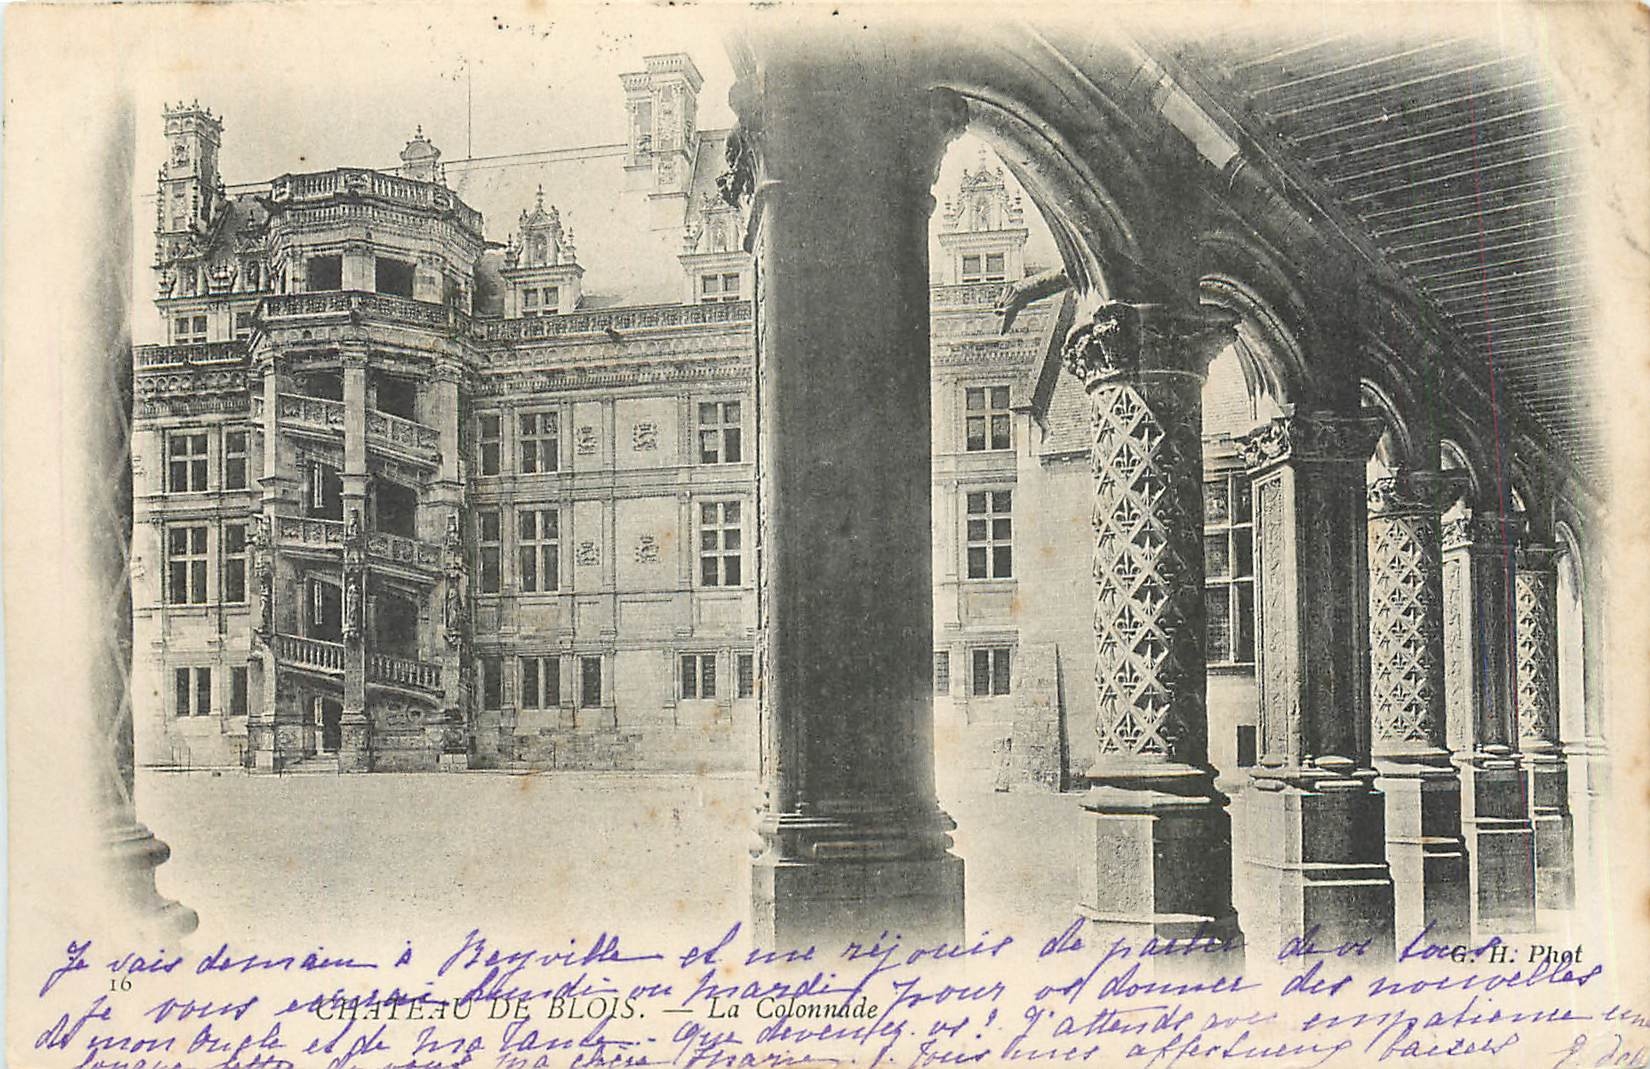 Je vais demain à Reyville et me réjouis de parler de vs tous
G. H. Phot
16
je vous écrirai lundi ou mardi pour vs donner des nouvelles
CHATEAU DE BLOIS. — La Colonnade
de mon Oncle et de ma Tante. Que devenez vs? J'attends avec impatience une
longue lettre de vous ma chère Marie. Tous mes affectueux baisers